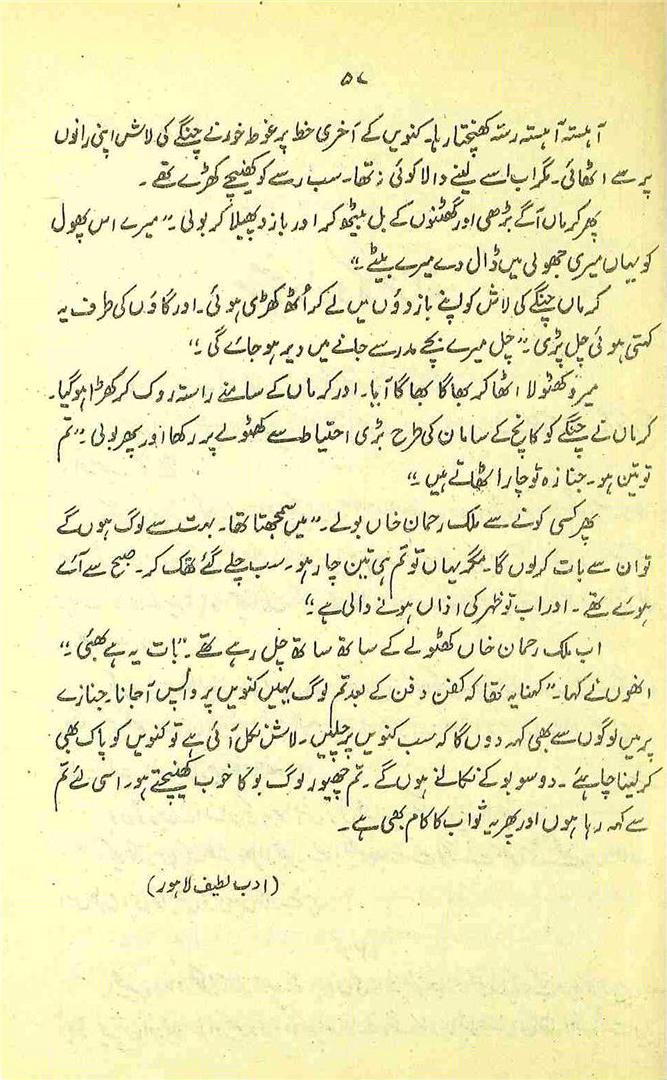 ۵۷
آہستہ آہستہ رستہ کھنچتا رہا۔ کنویں کے آخری خط پر غوطہ خور نے چنگے کی لاش اپنی رانوں
پر سے اٹھائی۔ مگر اب اسے لینے والا کوئی نہ تھا۔ سب رسے کو کھینچے کھڑے تھے۔
پھر کرماں آگے بڑھی اور گھٹنوں کے بل بیٹھ کر اور بازو پھیلا کر بولی۔ "میرے اس پھول
کو یہاں میری جھولی میں ڈال دے میرے بیٹے۔"
کرماں چنگے کی لاش کو اپنے بازوؤں میں لے کر اُٹھ کھڑی ہوئی۔ اور گاؤں کی طرف یہ
کہتی ہوئی چل پڑی۔ "چل میرے بچے مدرسے جانے میں دیر ہو جائے گی۔"
میرو کھٹولا اٹھا کر بھاگا بھاگا آیا۔ اور کرماں کے سامنے راستہ روک کر کھڑا ہو گیا۔
کرماں نے چنگے کو کانچ کے سامان کی طرح بڑی احتیاط سے کھٹولے پر رکھا اور پھر بولی۔ "تم
تو تین ہو۔ جنازہ تو چار اٹھاتے ہیں۔"
پھر کسی کونے سے ملک رحمان خاں بولے۔ "میں سمجھتا تھا۔ بہت سے لوگ ہوں گے
تو ان سے بات کر لوں گا۔ مگر یہاں تو تم ہی تین چار ہو۔ سب چلے گئے تھک کر۔ صبح سے آئے
ہوئے تھے۔ اور اب تو ظہر کی اذاں ہونے والی ہے۔"
اب ملک رحمان خاں کھٹولے کے ساتھ ساتھ چل رہے تھے۔ "بات یہ ہے بھئی۔"
انھوں نے کہا۔ "کہنا یہ تھا کہ کفن دفن کے بعد تم لوگ یہیں کنویں پر واپس آ جانا۔ جنازے
پر میں لوگوں سے بھی کہہ دوں گا کہ سب کنویں پر چلیں۔ لاش نکل آئی ہے تو کنویں کو پاک بھی
کر لینا چاہئے۔ دو سو بوکے نکالنے ہوں گے۔ تم چھیور لوگ بوکا خوب کھینچتے ہو۔ اسی لئے تم
سے کہہ رہا ہوں اور پھر یہ ثواب کا کام بھی ہے۔
(ادب لطیف لاہور)